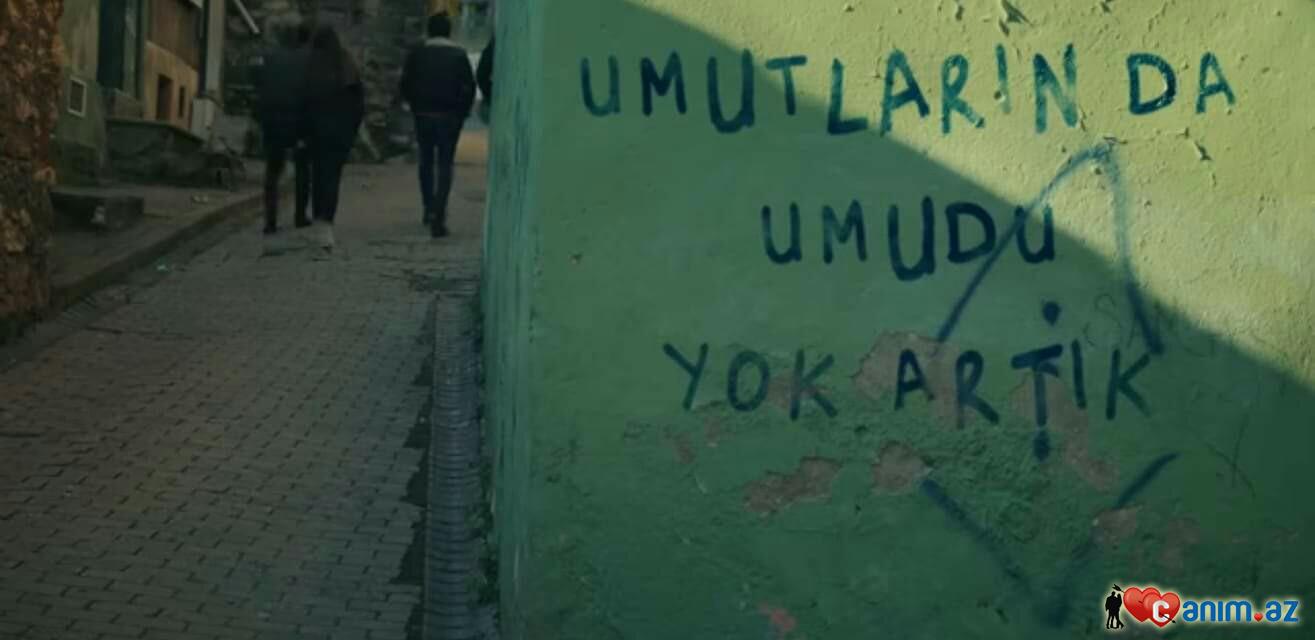 UMUTLARIN DA
UMUDU
YOK ARTIK
Canım.az